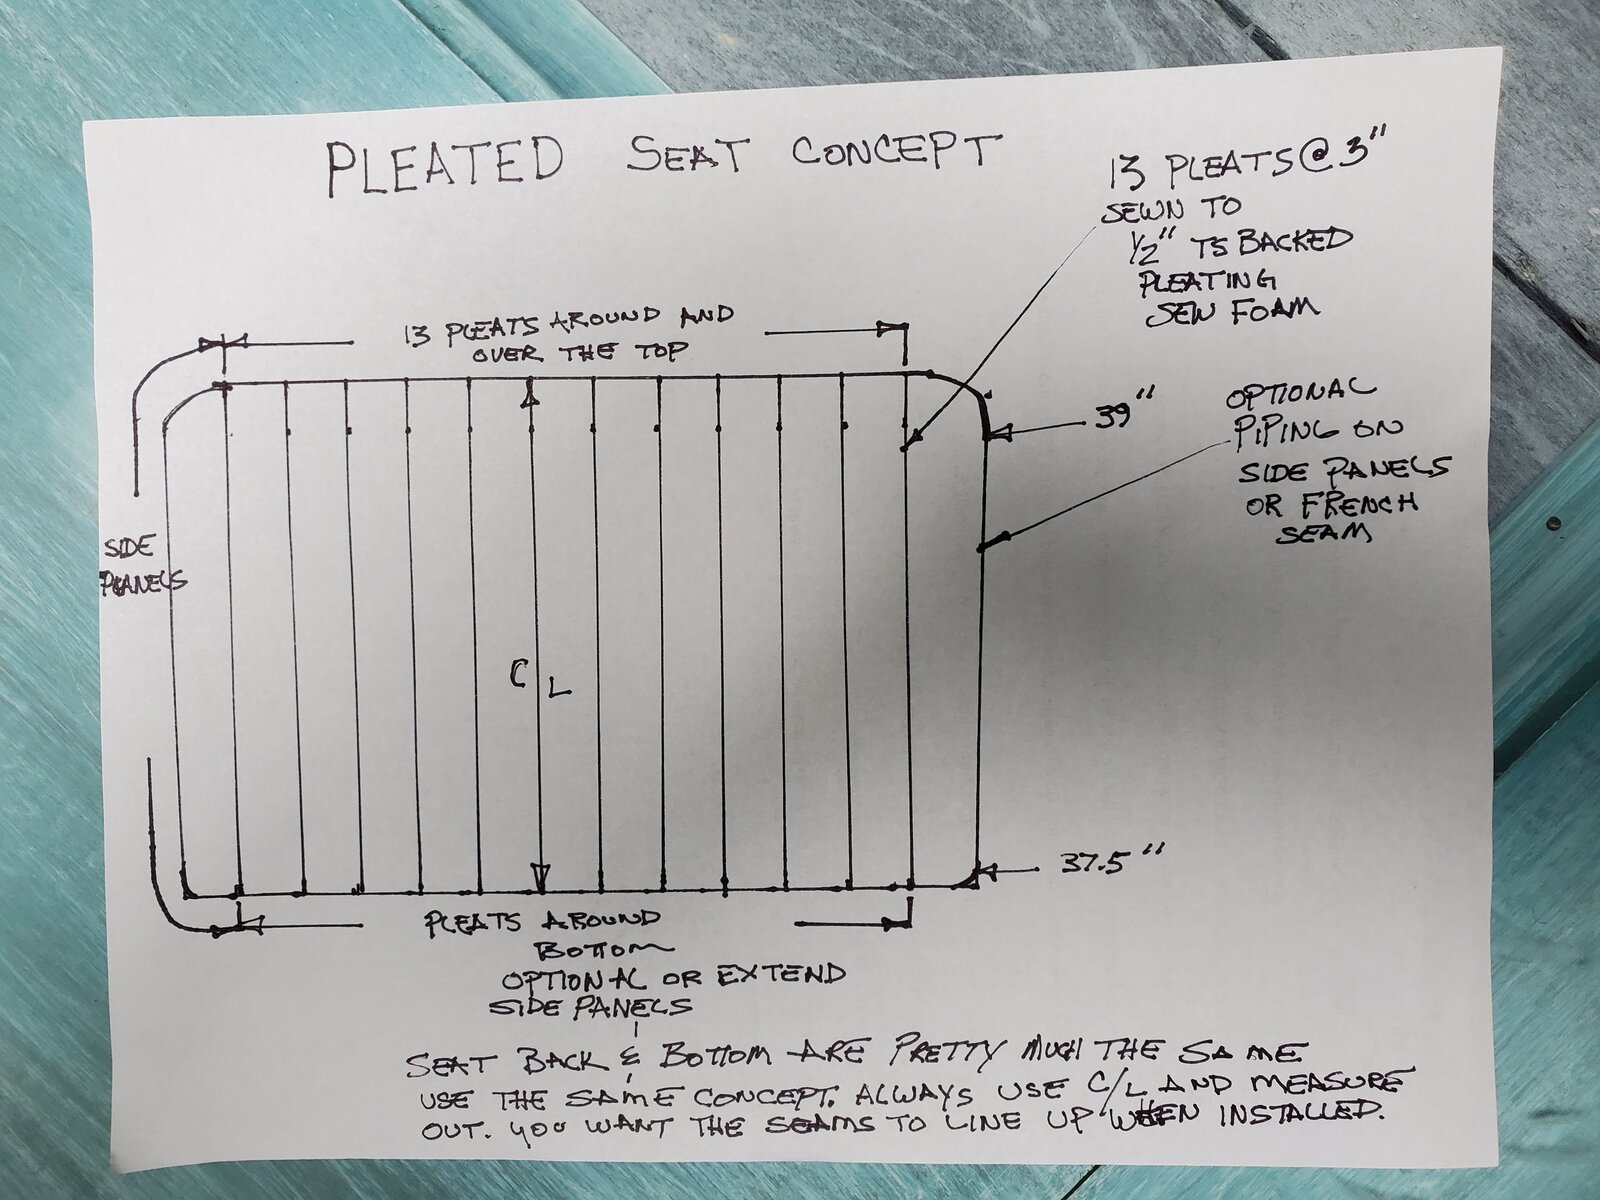 PLEATED SEAT CONCEPT
13 PLEATS @ 3"
SEWN TO
1/2" TS BACKED
PLEATING
SEW FOAM
13 PLEATS AROUND AND
OVER THE TOP
39"
OPTIONAL
PIPING ON
SIDE PANELS
OR FRENCH
SEAM
SIDE
PANELS
C/L
37.5"
PLEATS AROUND
BOTTOM
OPTIONAL OR EXTEND
SIDE PANELS
SEAT BACK & BOTTOM ARE PRETTY MUCH THE SAME
USE THE SAME CONCEPT. ALWAYS USE C/L AND MEASURE
OUT. YOU WANT THE SEAMS TO LINE UP WHEN INSTALLED.